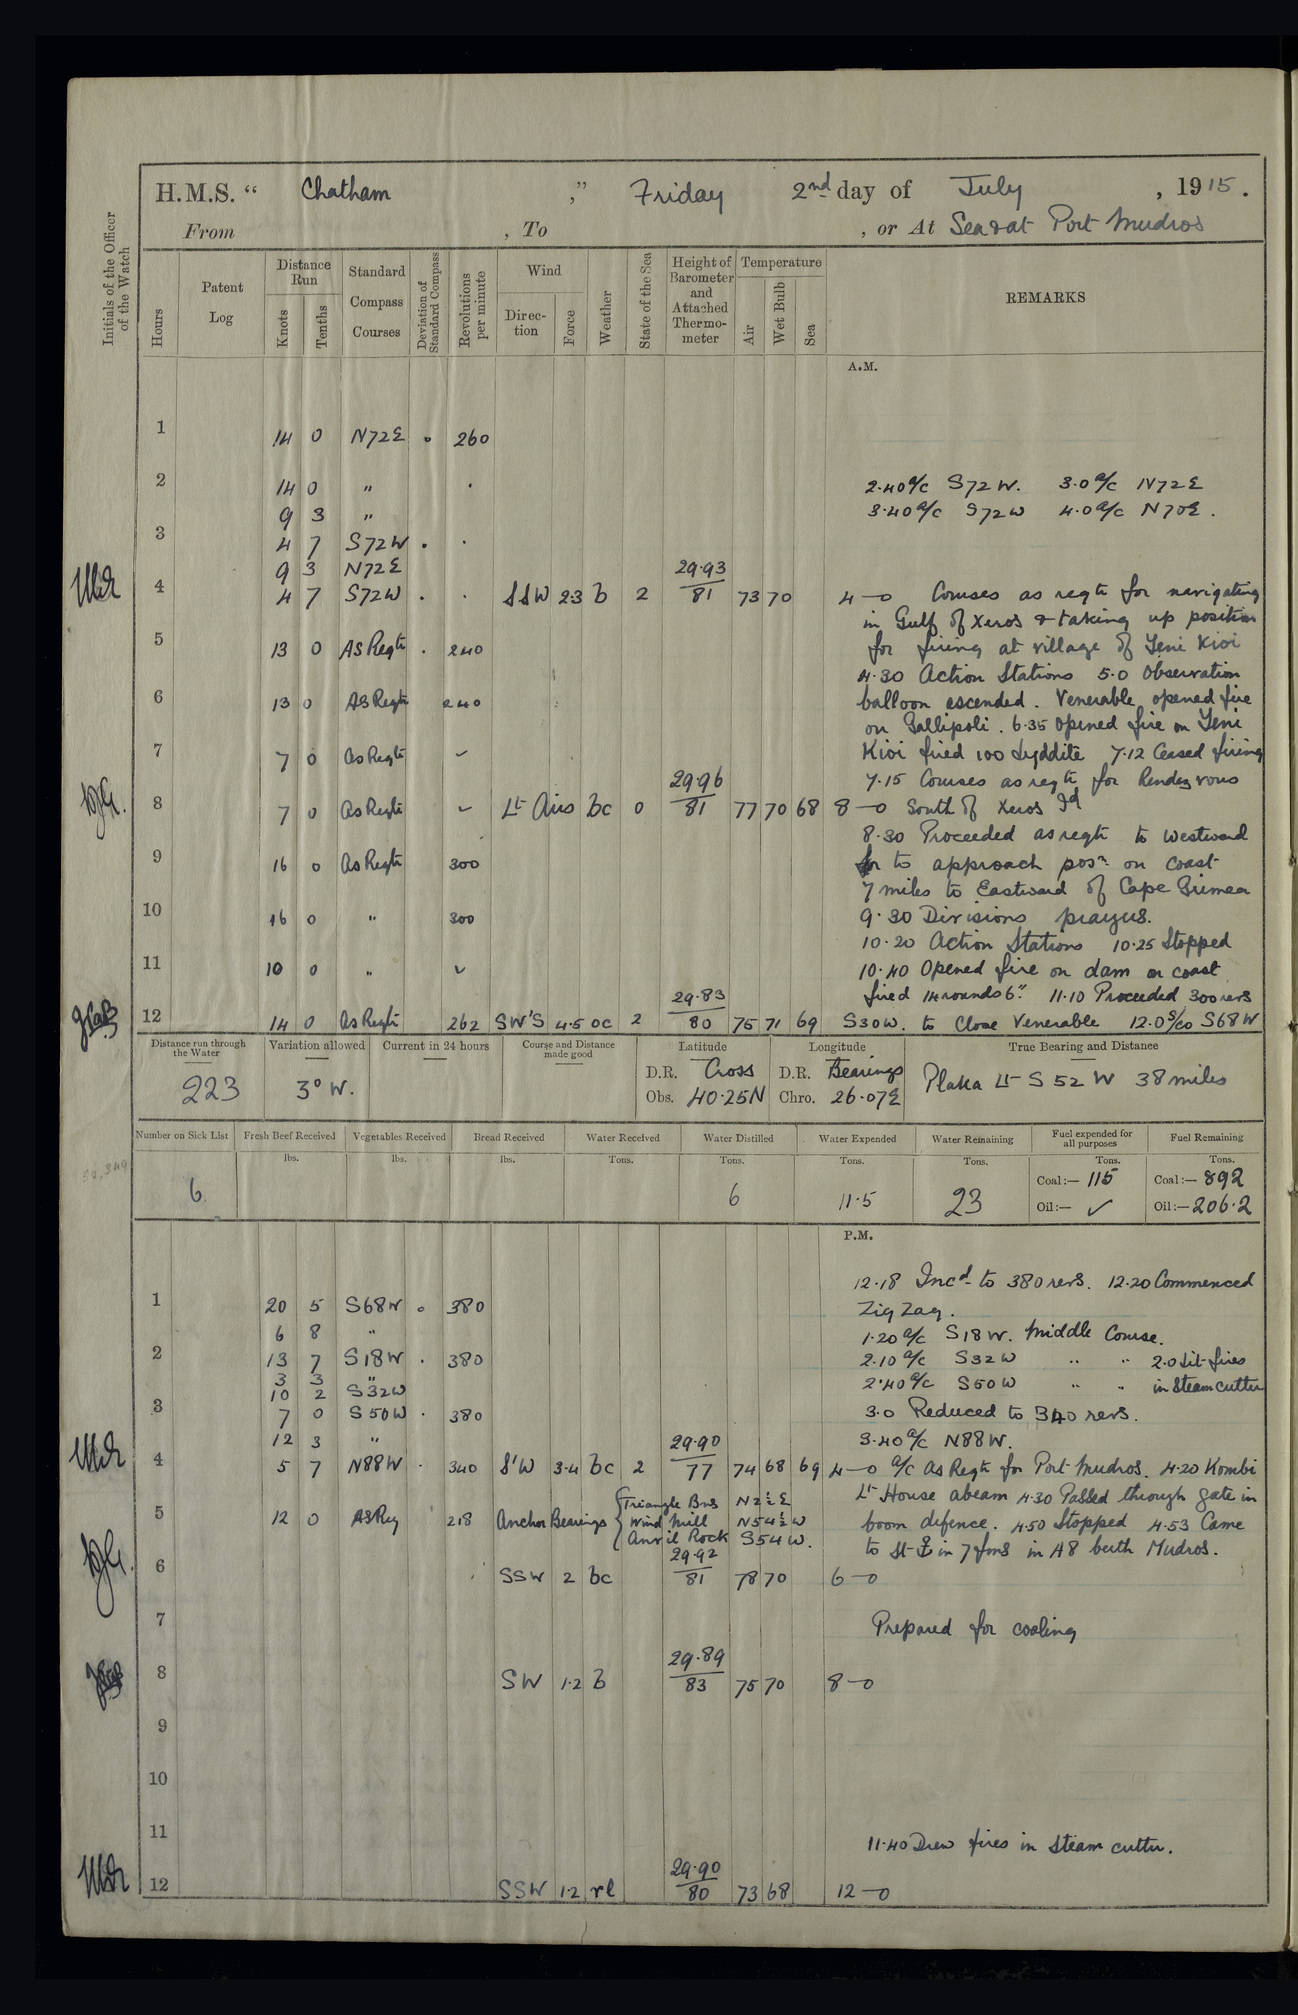 H.M.S. “ Chatham ,” Friday 2nd day of July , 1915 .
From , To , or At Sea & at Port Mudros
Initials of the Officer of the Watch
Hours
Patent Log
Distance Run
Knots
Tenths
Standard Compass Courses
Deviation of Standard Compass
Revolutions per minute
Wind
Direc-tion
Force
Weather
State of the Sea
Height of Barometer and Attached Thermo-meter
Temperature
Air
Wet Bulb
Sea
REMARKS
A.M.
1 14 0 N72E . 260
2 14 0 " . 2.40 a/c S72W. 3.0 a/c N72E
9 3 " 3.40 a/c S72W 4.0 a/c N70E.
3 4 7 S72W . .
9 3 N72E 29.93
4 4 7 S72W . . SSW 2.3 b 2 81 73 70 4—0 Courses as reqte for navigating
in Gulf of Xeros & taking up position
5 13 0 As Reqte . 240 for firing at village of Yeni Kioi
4.30 Action Stations 5.0 Observation
6 13 0 As Reqte 240 balloon ascended. Venerable opened fire
on Gallipoli. 6.35 opened fire on Yeni
7 7 0 As Reqte ✓ Kioi fired 100 Lyddite 7.12 Ceased firing
29.96 7.15 Courses as reqte for Rendezvous
8 7 0 As Reqte ✓ Lt Airs bc 0 81 77 70 68 8—0 South of Xeros Id
8.30 Proceeded as reqte to westward
9 16 0 As Reqte 300 to approach posn on coast
7 miles to Eastward of Cape Gremea
10 16 0 " 300 9.30 Divisions prayers.
10.20 Action Stations 10.25 Stopped
11 10 0 " ✓ 10.40 Opened fire on dam on coast
29.83 fired 14 rounds 6". 11.10 Proceeded 300 revs
12 14 0 As Reqte 262 SW'S 4.5 oc 2 80 75 71 69 S30W. to close Venerable 12.0 S/co S68W
Distance run through the Water
Variation allowed
Current in 24 hours
Course and Distance made good
Latitude
Longitude
True Bearing and Distance
223 3° W. D.R. Cross D.R. Bearings Plaka Lt S 52 W 38 miles
Obs. 40.25N Chro. 26.07E
Number on Sick List
Fresh Beef Received
Vegetables Received
Bread Received
Water Received
Water Distilled
Water Expended
Water Remaining
Fuel expended for all purposes
Fuel Remaining
lbs. lbs. lbs. Tons. Tons. Tons. Tons. Tons. Tons.
6 6 11.5 23 Coal:— 115 Coal:— 892
Oil:— ✓ Oil:— 206.2
P.M.
12.18 Incd to 380 revs. 12.20 Commenced
1 20 5 S68W . 380 Zig Zag.
6 8 " 1.20 a/c S18W. Middle Course.
2 13 7 S18W . 380 2.10 a/c S32W " " 2.0 Lit fires
3 3 " 2.40 a/c S50W " " in Steam cutter
10 2 S32W
3 7 0 S50W . 380 3.0 Reduced to 340 revs.
12 3 " 29.90 3.40 a/c N88W.
4 5 7 N88W . 340 S'W 3.4 bc 2 77 74 68 69 4—0 a/c As Reqte for Port Mudros. 4.20 Kombi
Triangle Bns N2½E Lt House abeam 4.30 Passed through gate in
5 12 0 As Req 218 Anchor Bearings Wind Mill N54½W boom defence. 4.50 Stopped 4.53 Came
Anvil Rock S54W. to St in 7 fms in A8 berth Mudros.
29.92
6 SSW 2 bc 81 78 70 6—0
7 Prepared for coaling
29.89
8 SW 1.2 b 83 75 70 8—0
9
10
11 11.40 Drew fires in Steam cutter.
29.90
12 SSW 1.2 rl 80 73 68 12—0